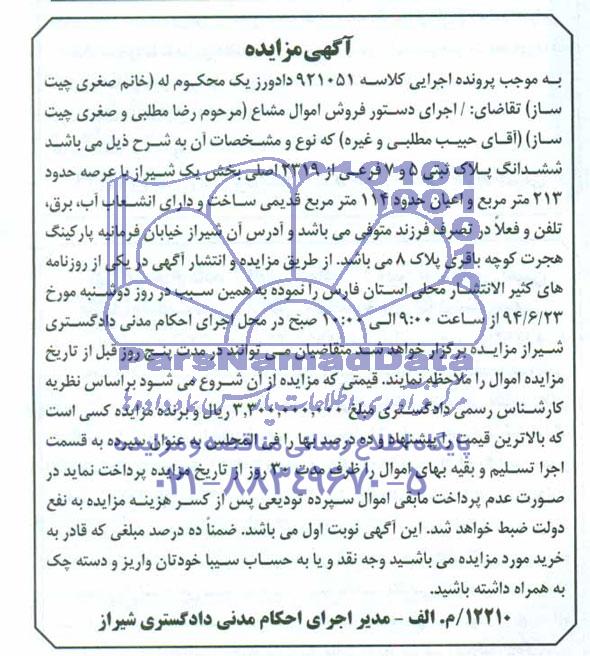 آگهی مزایده
به موجب پرونده اجرایی کلاسه ۹۲۱۰۵۱ دادورز یک محکوم له (خانم صغری چیت
ساز) تقاضای: / اجرای دستور فروش اموال مشاع (مرحوم رضا مطلبی و صغری چیت
ساز) (آقای حبیب مطلبی و غیره) که نوع و مشخصات آن به شرح ذیل می باشد
ششدانگ پلاک ثبتی ۵ و ۷ فرعی از ۲۳۱۹ اصلی بخش یک شیراز با عرصه حدود
۲۱۳ متر مربع و اعیان حدود ۱۱۴ متر مربع قدیمی ساخت و دارای انشعاب آب، برق،
تلفن و فعلاً در تصرف فرزند متوفی می باشد و آدرس آن شیراز خیابان فرمانیه پارکینگ
هجرت کوچه باقری پلاک ۸ می باشد. از طریق مزایده و انتشار آگهی در یکی از روزنامه
های کثیر الانتشار محلی استان فارس را نموده به همین سبب در روز دوشنبه مورخ
۹۴/۶/۲۳ از ساعت ۹:۰۰ الی ۱۰:۰۰ صبح در محل اجرای احکام مدنی دادگستری
شیراز مزایده برگزار خواهد شد متقاضیان می توانند در مدت پنج روز قبل از تاریخ
مزایده اموال را ملاحظه نمایند. قیمتی که مزایده از آن شروع می شود براساس نظریه
کارشناس رسمی دادگستری مبلغ ۳,۳۰۰,۰۰۰,۰۰۰ ریال و برنده مزایده کسی است
که بالاترین قیمت را پیشنهاد و ده درصد بها را فی المجلس به عنوان سپرده به قسمت
اجرا تسلیم و بقیه بهای اموال را ظرف مدت ۳۰ روز از تاریخ مزایده پرداخت نماید در
صورت عدم پرداخت مابقی اموال سپرده تودیعی پس از کسر هزینه مزایده به نفع
دولت ضبط خواهد شد. این آگهی نوبت اول می باشد. ضمناً ده درصد مبلغی که قادر به
خرید مورد مزایده می باشید وجه نقد و یا به حساب سیبا خودتان واریز و دسته چک
به همراه داشته باشید.
۱۲۲۱۰/م. الف - مدیر اجرای احکام مدنی دادگستری شیراز
ParsNamadData
مرکز فرآوری اطلاعات پارس نماد داده ها
پایگاه اطلاع رسانی مناقصه و مزایده
۰۲۱-۸۸۳۴۹۶۷۰-۵